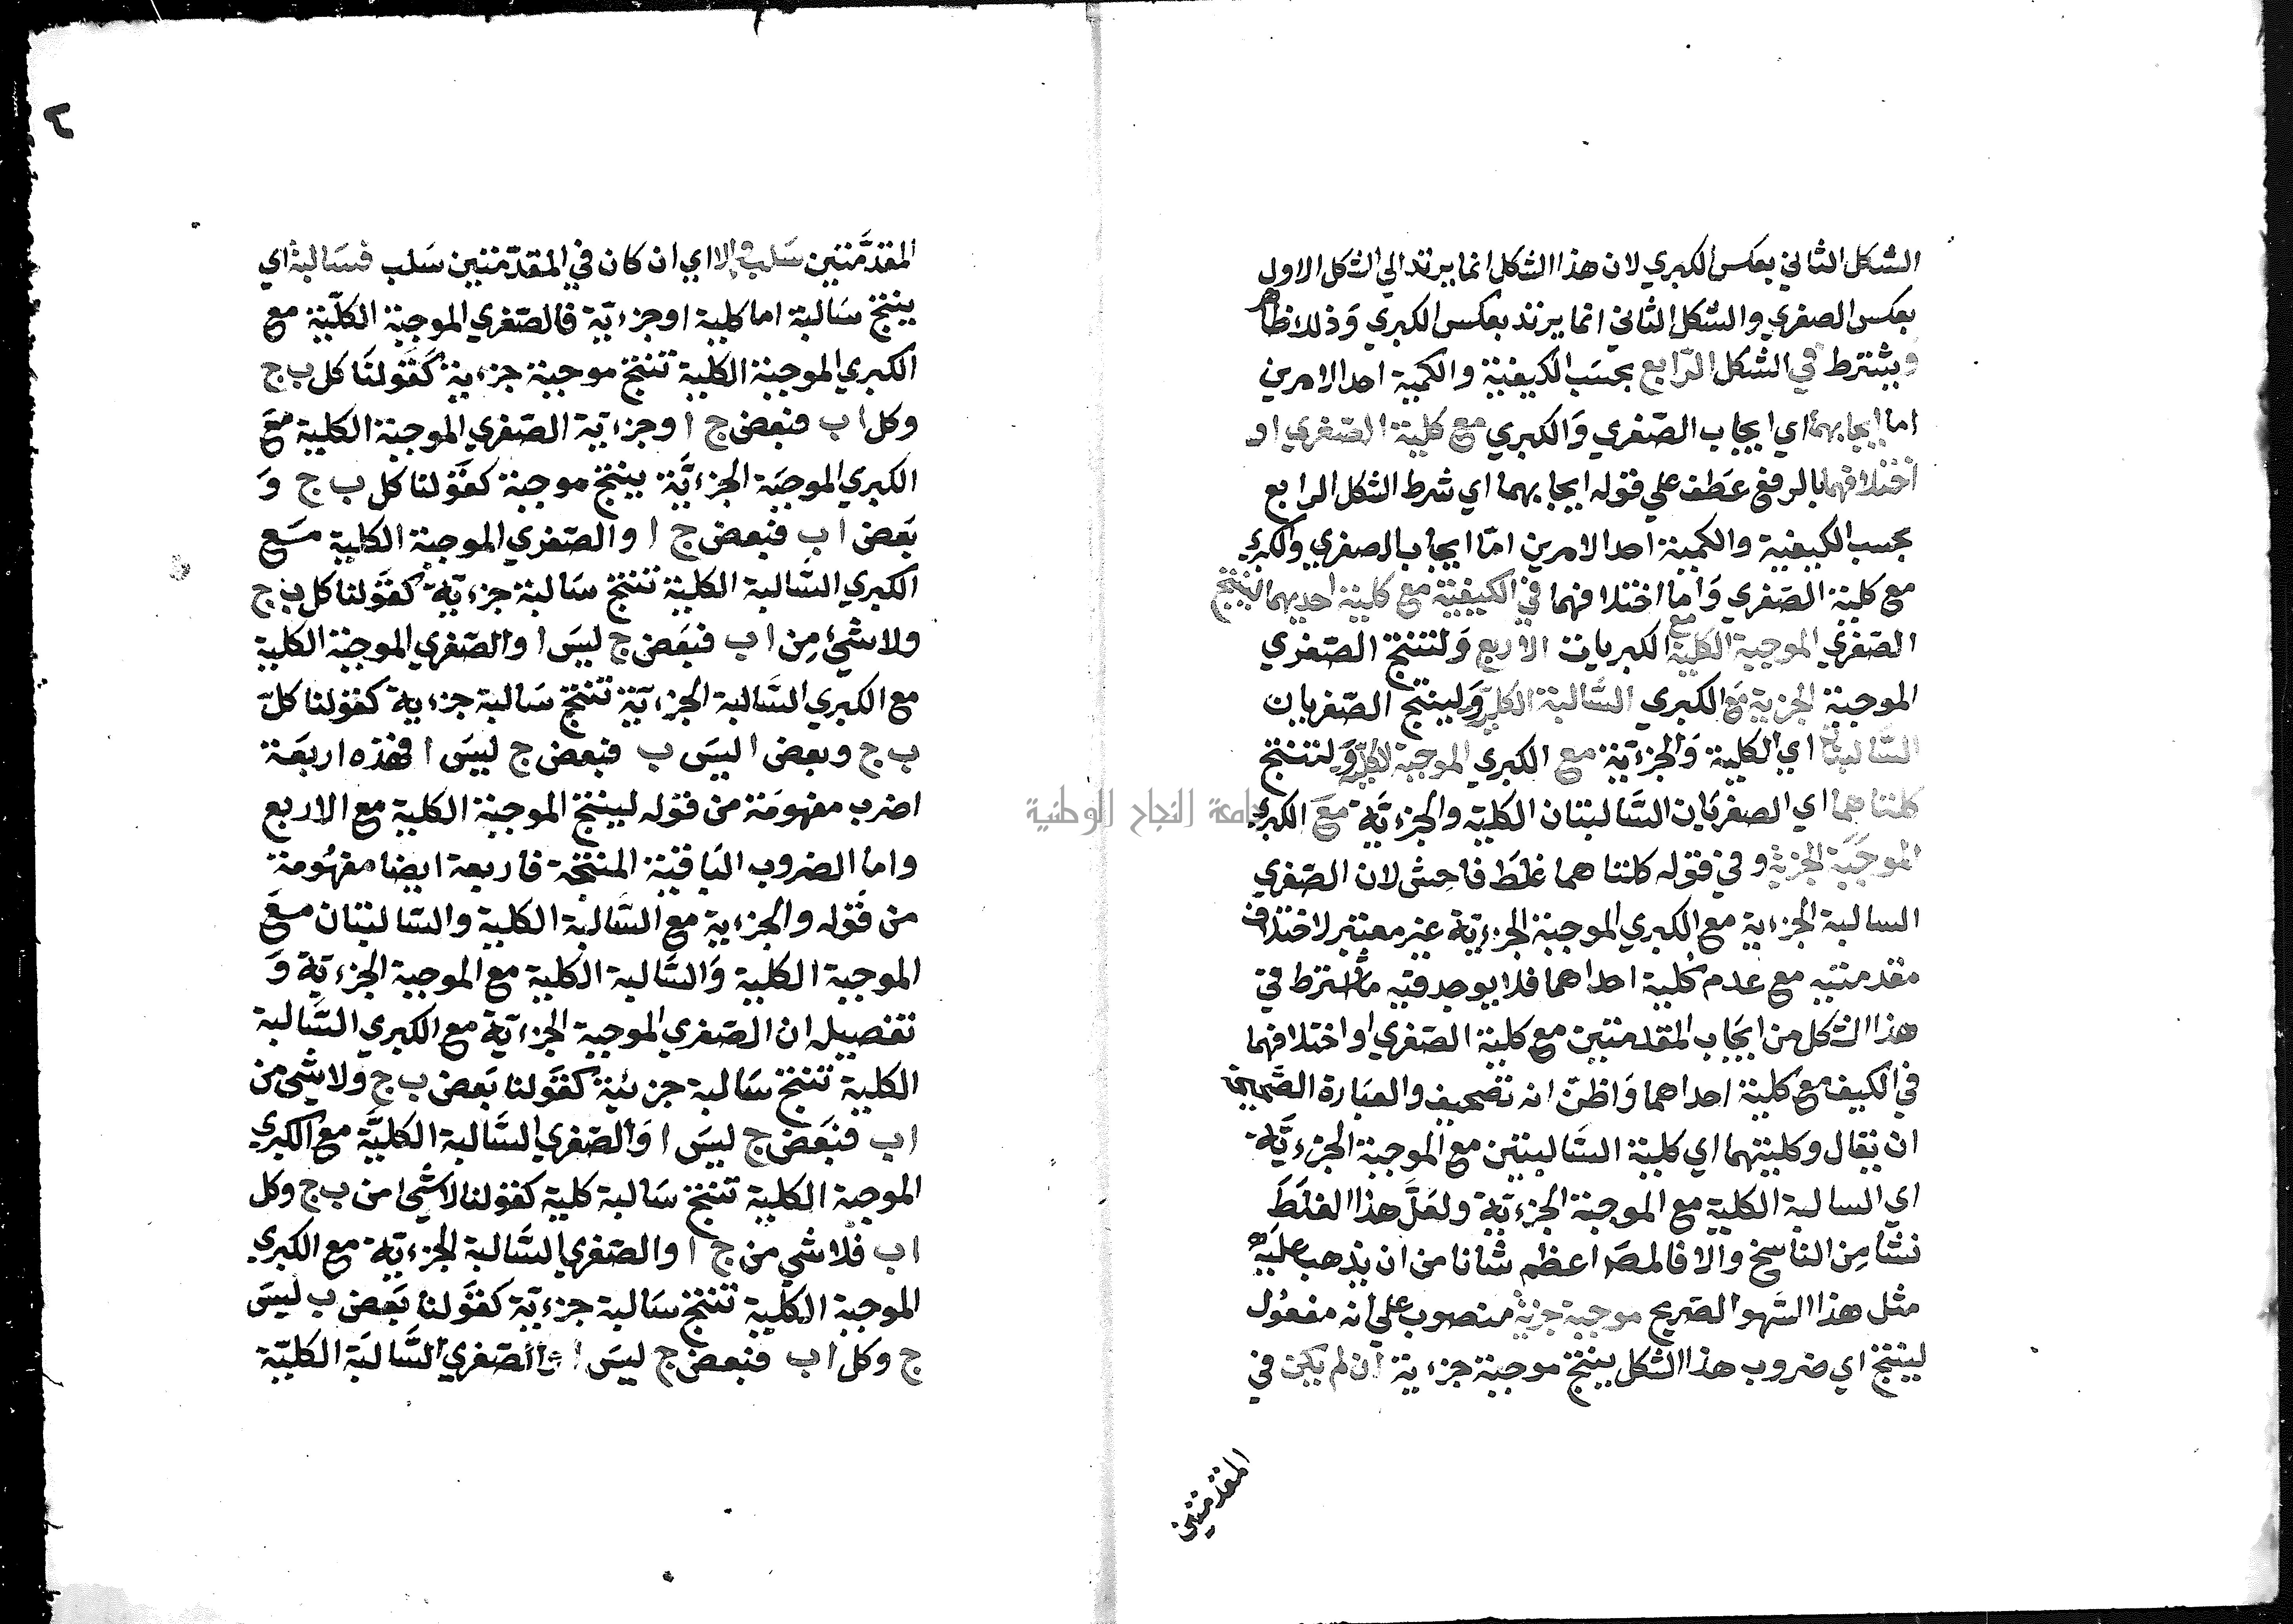 الشكل الثاني بعكس الكبري لان هذا الشكل انما يرتد الي الشكل الاول
بعكس الصغري والشكل الثاني انما يرتد بعكس الكبري وَذلك ظاهر
ويشترط في الشكل الرّابع بحسَب الكيفية والكمية احد الامرين
اما ايجابهما اي ايجاب الصّغري وَالكبري مع كلية الصّغري او
اختلافهما بالرفع عَطف علي قوله ايجابهما اي شرط الشكل الرابع
بحسب الكيفية والكمية احد الامرين امّا ايجاب الصغري والكبري
مع كلية الصّغري وَاما اختلافهما في الكيفية مع كلية احديهما لينتج
الصّغري الموجبة الكلية مع الكبريات الاربع وَلتنتج الصّغري
الموجبة الجزية مَع الكبري السَّالبة الكلية وَلينتج الصّغريان
السَّالبتان اي الكلية وَالجزءية مع الكبري الموجبة الكلية وَلتنتج
كلتاهما اي الصغريَان السَّالبتان الكلية والجزءيَّة مَعَ الكبري
الموجَبَة الجزية وفي قوله كلتاهما غلَط فاحش لان الصّغري
السالبة الجزءية مع الكبري الموجبة الجزءيّة غير معتبر لاختلاف
مقدمتيه مع عدم كلية احداهما فلا يوجد فيه ما اشترط في
هذا الشكل من ايجَاب المقدمتين مع كلية الصّغري او اختلافهما
في الكيف مع كلية احداهما وَاظنّ انه تصْحيف والعبَارة الصَّحيحة
ان يقال وكليتهما اي كلية السَّالبتين مع الموجبة الجزءيَّة
اي السالبة الكلية مع الموجبة الجزءيّة ولعَلَّ هذا الغلَطَ
نشأ مِن الناسخ والا فالمصَ اعظم شانا من ان يذهب عليَه
مثل هذا السَّهو الصّريح موجبة جزية منصوب علي انه مفعُول
لينتج اي ضروب هذا الشكل ينتج موجبة جزءية ان لم يكن في
المقدمتين
٢
المقدَّمتين سَلب والا اي ان كان في المقدّمتين سَلب فسَالبة اي
ينتج سَالبة اما كلية او جزءيّة فالصّغري الموجبة الكلّية مع
الكبري الموجبة الكلية تنتج موجبة جزءية كَقَولنَا كل ب ج
وكل ا ب فبعض ج ا وجزءية الصّغري الموجبة الكلية مَعَ
الكبري الموجبَة الجزءيَّة ينتج موجبة كقَولنا كل ب ج وَ
بَعض ا ب فبعض ج ا والصّغري الموجبة الكلية مَع
الكبري السَّالبة الكلية تنتج سَالبة جزءيّة كقَولنا كل ب ج
ولاشيْ مِن ا ب فبَعَض ج ليسَ ا والصّغري الموجبة الكلية
مع الكبري السَّالبة الجزءيّة تنتج سَالبة جزءية كقولنا كلّ
ب ج وبعض ا ليسَ ب فبعض ج ليسَ ا فهذه اربعَة
اضرب مفهومَة من قوله لينتج الموجبة الكلية مع الاربع
واما الضروب البَاقية المنتجة فاربعة ايضا مفهُومة
من قَوله والجزءية مع السَّالبة الكلية والسّالبتان مَعَ
الموجبة الكلية وَالسَّالبة الكلية مع الموجبة الجزءيّة وَ
تفصيله ان الصّغري الموجبة الجزءيّة مع الكبري السَّالبة
الكلية تنتج سَالبة جزئية كقَولنا بَعض ب ج ولا شي من
ا ب فبَعَض ج ليسَ ا وَالصّغري السَّالبة الكليَّة مع الكبري
الموجبة الكلية تنتج سَالبة كلية كقولنا لاشيْ من ب ج وكل
ا ب فلا شي من ج ا والصّغري السَّالبة الجزءيّة مع الكبري
الموجبة الكلية تنتج سَالبة جزءيّة كقَولنا بَعض ب ليسَ
ج وكل ا ب فبعض ج ليسَ ا والصّغري السَّالبَة الكليّة
جامعة النجاح الوطنية